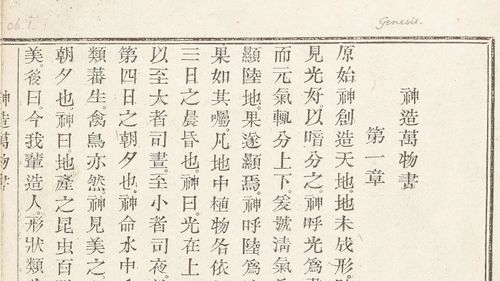 ch. i.
Genesis.
神造萬物書
第一章
原始神創造天地。地未成形。
見光好。以暗分之。神呼光為
而元氣輒分上下。爰號淸氣
顯陸地。果遂顯焉。神呼陸為
果如其囑。凡地中植物各依
三日之晨昏也。神曰。光在上
以至大者司晝。至小者司夜。
第四日之朝夕也。神命水中
類蕃生。禽鳥亦然。神見美之。
朝夕也。神曰。地產之昆虫百
美。後曰。今我輩造人。形狀類
神造萬物書